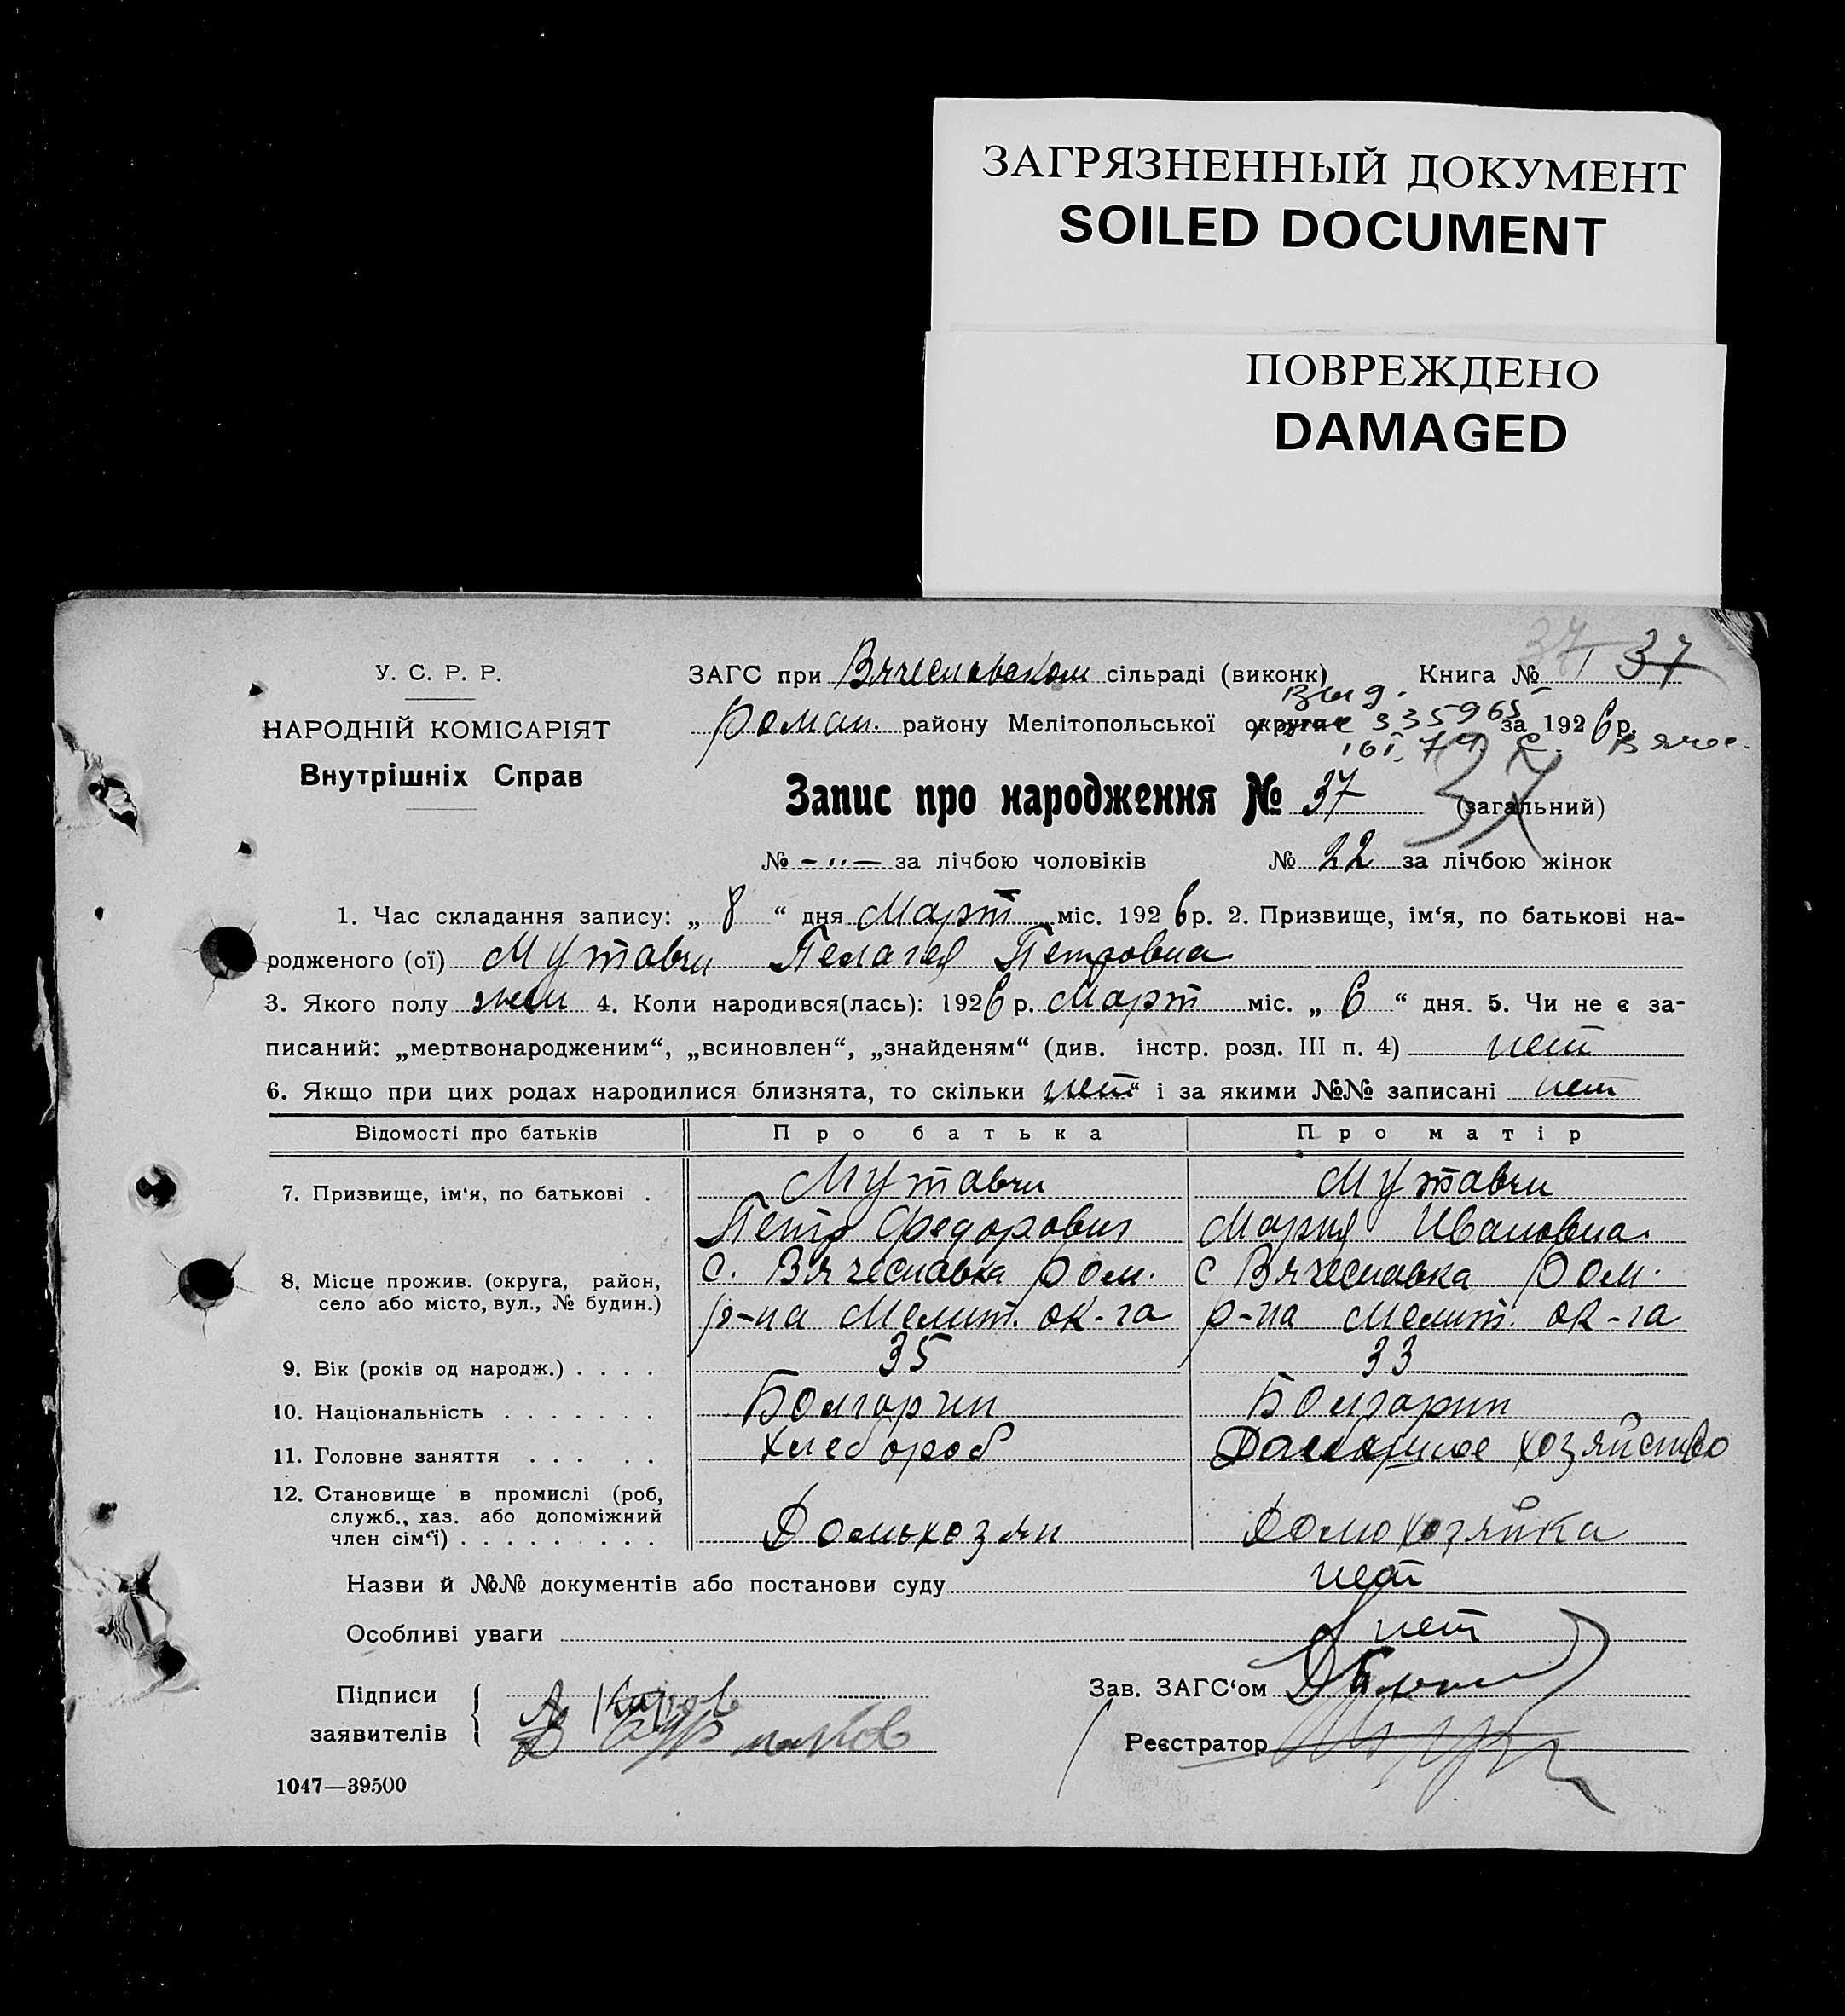 ЗАГРЯЗНЕННЫЙ ДОКУМЕНТ
SOILED DOCUMENT
ПОВРЕЖДЕНО
DAMAGED
37 37
У. С. Р. Р.
ЗАГС при Вячеславском сільраді (виконк) Книга №
выд.
НАРОДНІЙ КОМІСАРІЯТ
Роман. району Мелітопольської округи 335965 за 1926 р.
Внутрішніх Справ
Запис про народження № 37 (загальний) 37
№ – „ – за лічбою чоловіків № 22 за лічбою жінок
1. Час складання запису: „ 8 “ дня Март міс. 1926 р. 2. Призвище, ім‘я, по батькові на-
родженого (ої) Мутавчи Пелагея Петровна
3. Якого полу жен 4. Коли народився(лась): 1926 р. Март міс. „ 6 “ дня. 5. Чи не є за-
писаний: „мертвонародженим“, „всиновлен“, „знайденям“ (див. інстр. розд. III п. 4) нет
6. Якщо при цих родах народилися близнята, то скільки нет і за якими №№ записані нет
Відомості про батьків Про батька Про матір
7. Призвище, ім‘я, по батькові . Мутавчи Мутавчи
Петр Федорович Мария Ивановна
8. Місце прожив. (округа, район, с. Вячеславка Ром. с Вячеславка Ром.
село або місто, вул., № будин.) р-на Мелит. ок-га р-на Мелит. ок-га
9. Вік (років од народж.) . . . . 35 33
10. Національність . . . . . . . Болгарин Болгарин
11. Головне заняття . . . . . Хлебороб Домашнее хозяйство
12. Становище в промислі (роб,
служб., хаз. або допоміжний
член сім‘ї) . . . . . . . . . Домохозяин Домохозяйка
Назви й №№ документів або постанови суду нет
Особливі уваги нет
Підписи
заявителів
Зав. ЗАГС‘ом
Реєстратор
1047—39500